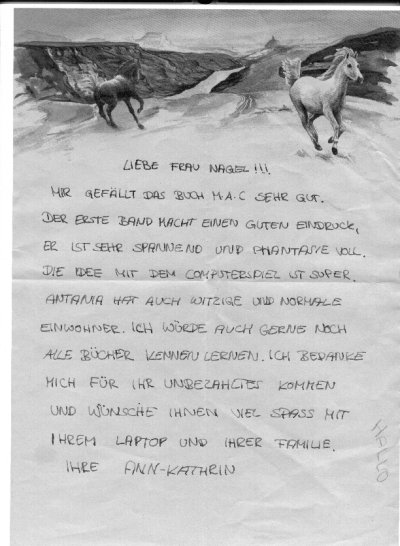 LIEBE FRAU NAGEL!!!
MIR GEFÄLLT DAS BUCH M.A.C SEHR GUT.
DER ERSTE BAND MACHT EINEN GUTEN EINDRUCK,
ER IST SEHR SPANNEND UND PHANTASIE VOLL.
DIE IDEE MIT DEM COMPUTERSPIEL IST SUPER.
ANTANIA HAT AUCH WITZIGE UND NORMALE
EINWOHNER. ICH WÜRDE AUCH GERNE NOCH
ALLE BÜCHER KENNEN LERNEN. ICH BEDANKE
MICH FÜR IHR UNBEZAHLTES KOMMEN
UND WÜNSCHE IHNEN VIEL SPASS MIT
IHREM LAPTOP UND IHRER FAMILIE.
IHRE ANN-KATHRIN
HALLO